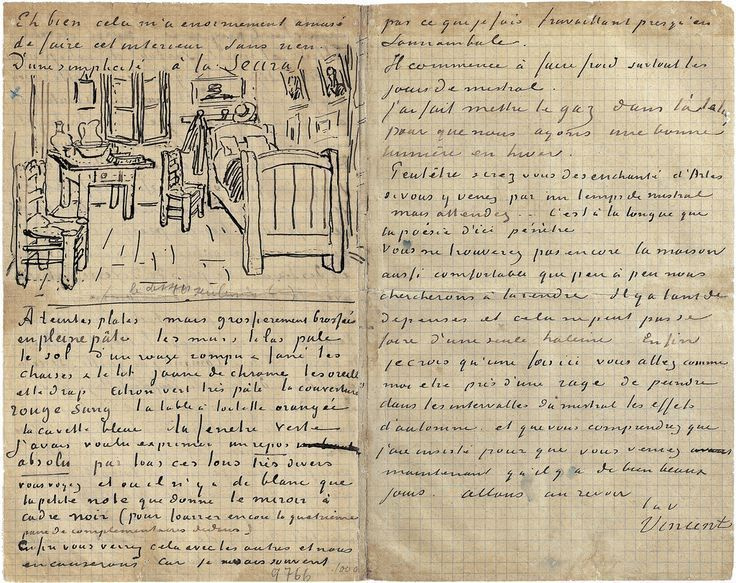 Eh bien cela m'a enormement amusé
de faire cet interieur sans rien.
D'une simplicité à la Seurat
A teintes plates mais grossierement brossées
en pleine pâte les murs lilas pale
le sol d'un rouge rompu & fané les
chaises & le lit jaune de chrome les oreillers
et le drap citron vert très pâle la couverture
rouge sang la table à toilette orangée
la cuvette bleue la fenetre verte
J'avais voulu exprimer un repos
absolu par tous ces tons très divers
vous voyez et ou il n'y a de blanc que
la petite note que donne le miroir à
cadre noir (pour fourrer encore la quatrième
paire de complementaires dedans)
Enfin vous verrez cela avec les autres et nous
en causerons car je ne sais souvent
9766
pas ce que je fais travaillant presqu'en
somnambule.
Il commence à faire froid surtout les
jours de mistral.
J'ai fait mettre le gaz dans l'atelier
pour que nous ayons une bonne
lumière en hiver.
Peutêtre serez vous desenchanté d'Arles
si vous y venez par un temps de mistral
mais attendez.. C'est à la longue que
la poësie d'ici pénètre
Vous ne trouverez pas encore la maison
aussi comfortable que peu à peu nous
chercherons à la rendre Il y a tant de
depenses et cela ne peut pas se
faire d'une seule haleine Enfin
je crois qu'une fois ici vous allez comme
moi etre pris d'une rage de peindre
dans les intervalles du mistral les effets
d'automne. et que vous comprendrez que
j'ai insisté pour que vous venez
maintenant qu'il y a de bien beaux
jours. allons, au revoir
t. à v.
Vincent